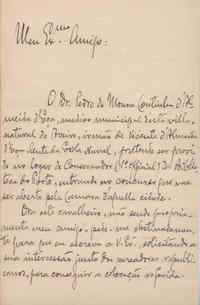 Meu Exmo Amigo.
O Dr. Pedro de Moura Coutinho d'Al-
meida d'Eça, medico municipal desta villa,
natural de Aveiro, irmão de Vicente d'Almeida
d'Eça lente da Escola Naval, pretende ser provi-
do no logar de Conservador (1º official) da Biblio-
theca do Porto, entrando no concurso que vae
ser aberto pela Camara d'aquella cidade.
Com este cavalheiro, não sendo propria-
mente meu amigo, pede-me
para que eu escreva a V. Ex. solicitando a
sua interessão junto dos vereadores republi-
canos, para conseguir a collocação referida.